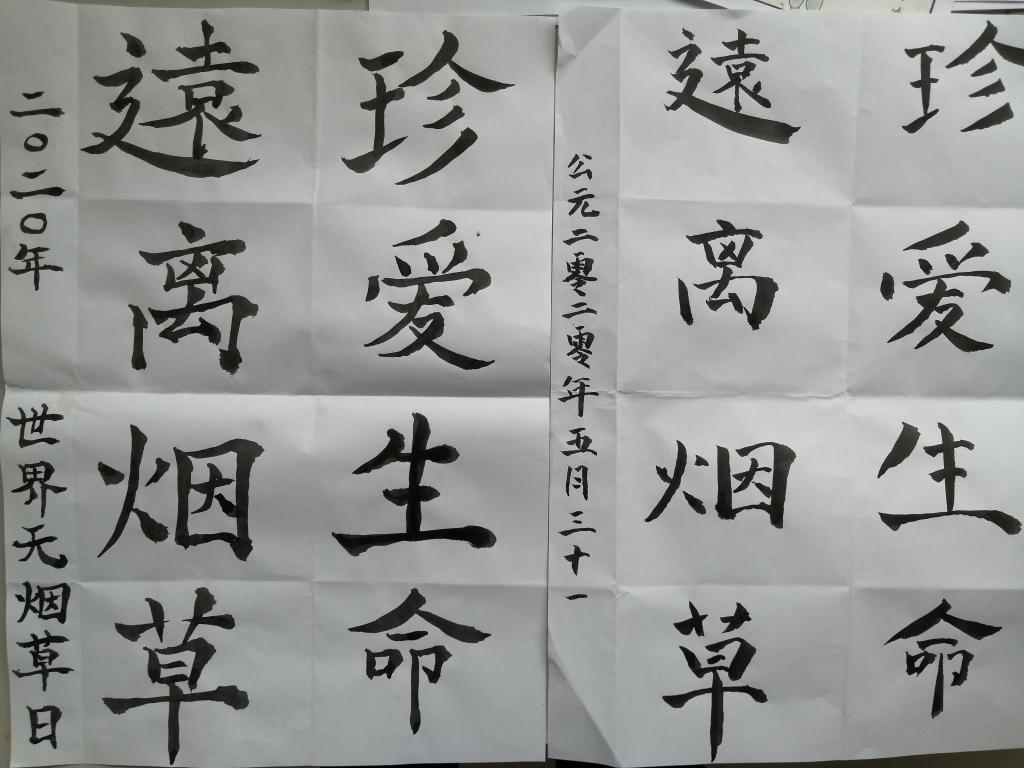 珍爱生命
遠离烟草
二〇二〇年 世界无烟草日
珍爱生命
遠离烟草
公元二零二零年五月三十一